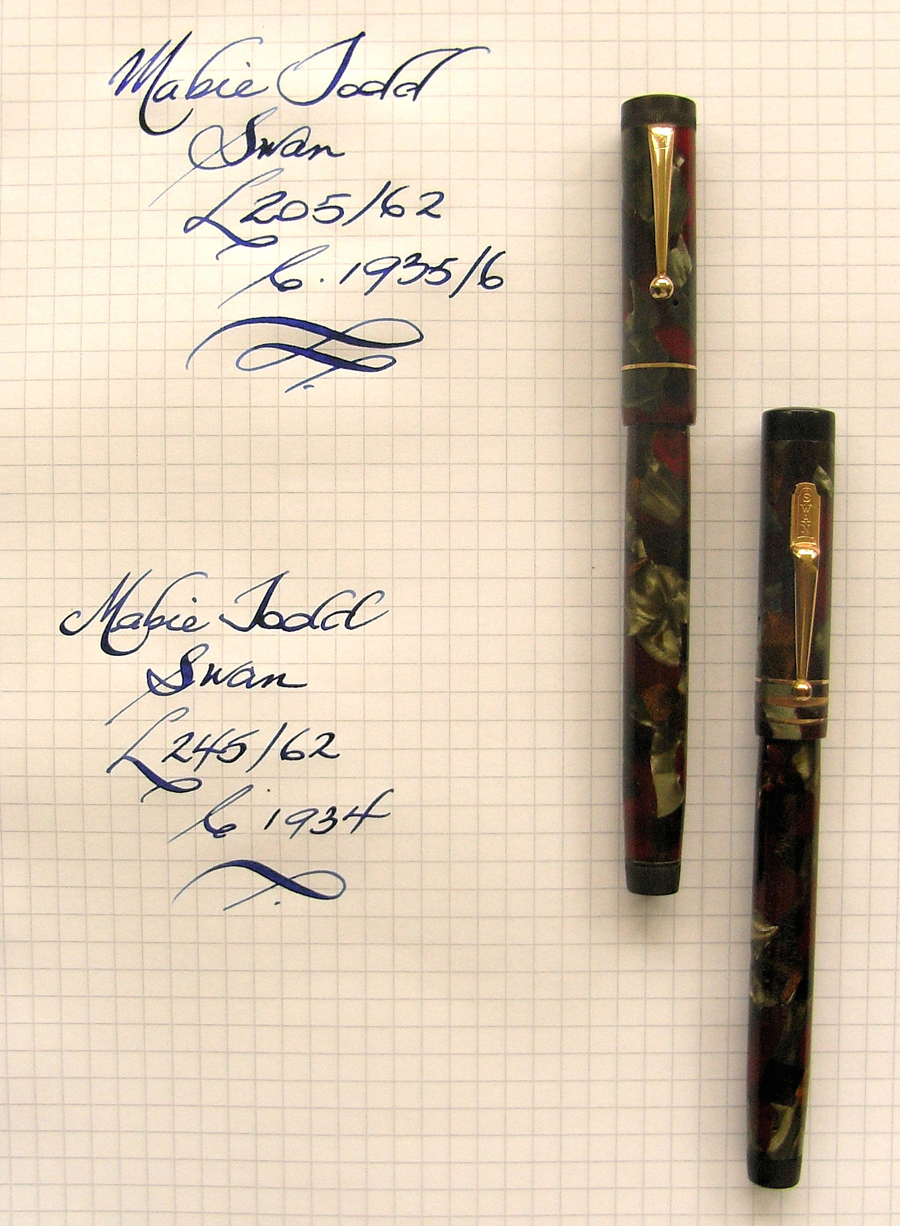 Mabie Todd
Swan
L205/62
C. 1935/6
Mabie Todd
Swan
L245/62
C 1934
SWAN